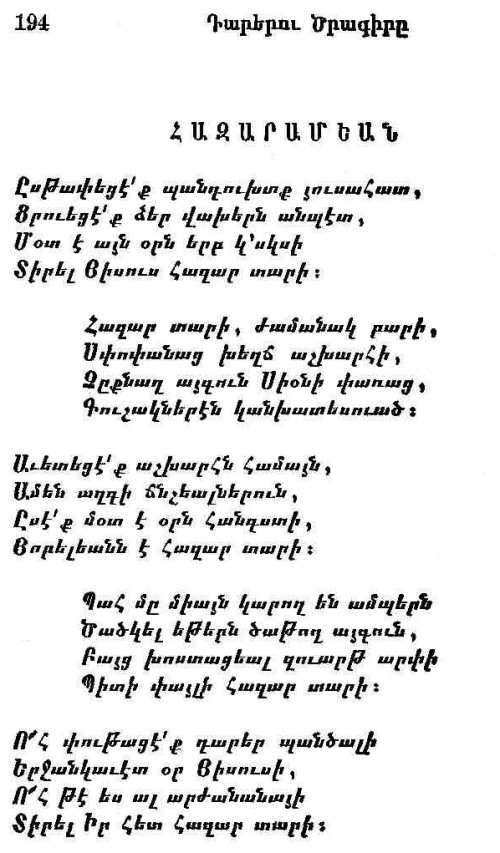 194 Դարերու Ծրագիրը
ՀԱԶԱՐԱՄԵԱՆ
Ըսթափեցէ՛ք պանդուխտք յուսահատ,
Ցրուեցէ՛ք ձեր վախերն անպէտ,
Մօտ է այն օրն երբ կ՚սկսի
Տիրել Յիսուս Հազար տարի։
Հազար տարի, ժամանակ բարի,
Սփոփանաց խեղճ աշխարհի,
Չըքնաղ այգուն Սիօնի փառաց,
Գուշակներէն կանխատեսուած։
Աւետեցէ՛ք աշխարհն համայն,
Ամեն ազգի ճնշեալներուն,
Ըսէ՛ք մօտ է օրն հանգստի,
Յոբելեանն է Հազար տարի։
Պահ մը միայն կարող են ամպերն
Ծածկել եթերն ծաթող այգուն,
Բայց խոստացեալ զուարթ արփի
Պիտի փայլի Հազար տարի։
Ո՜հ փութացէ՛ք դարեր պանծալի
Երջանկաւէտ օր Յիսուսի,
Ո՜հ թէ ես ալ արժանանայի
Տիրել Իր հետ Հազար տարի։